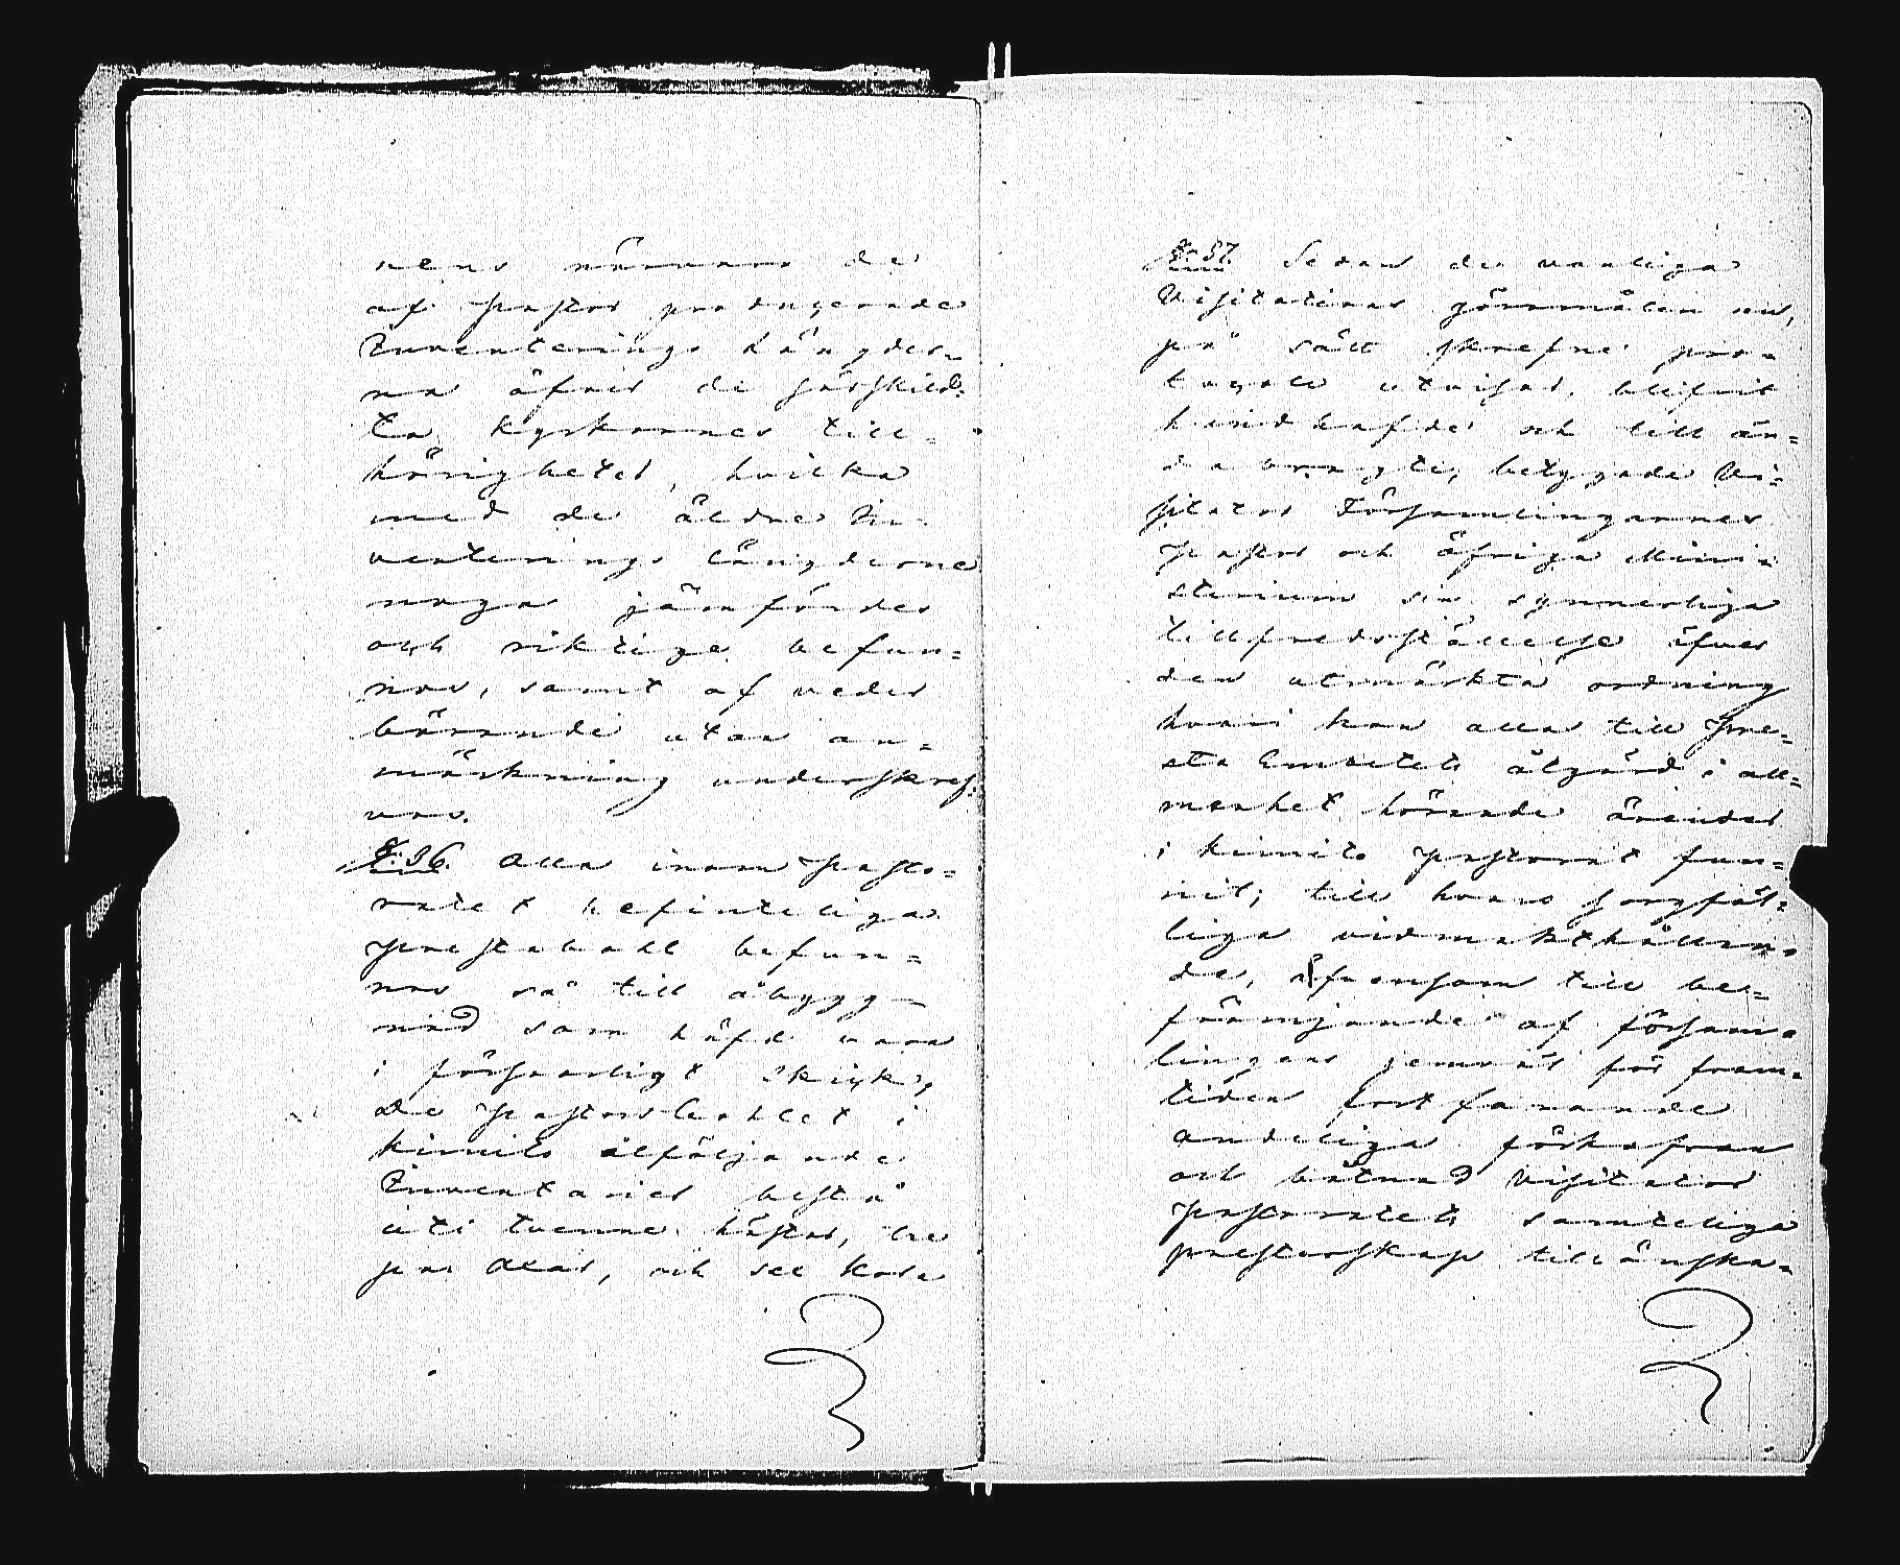 nens närvaro de
af Pastor producerade
Inventerings Längder-
na öfver de särskild-
ta Kyrkornes till-
hörigheter, hvilka
med de äldre In-
venterings längderne
noga jämfördes
och riktige befun-
nos, samt af veder
börande utan an-
märkning underskref-
vos.
§. 36. Alla inom Pasto-
ratet befinteliga
Prestabohl befun-
nos så till åbygg-
nad som häfd vara
i försvarligt skick,
de Pastorsbohlet i
Kimito åtföljande
Inventarier bestå
uti tvenne hästar, tre
par Oxar, och sex Kor
§. 37. Sedan de vanliga
Visitations göromålen som,
på sätt skrefne pro-
tocoll utvisar, blifvit
handhafde och till än-
da bragte, betygade Vi-
sitator Församlingarnes
Pastor och öfriga Mini-
sterium sin synnerliga
tillfredsställelse öfver
den utmärkta ordning
hvari han alla till Pre-
sta Embetets åtgärd i all-
menhet hörande ärender
i Kimito Pastorat fun-
nit; till hvars sorgfäl-
liga vidmakthållan-
de, äfvensom till be-
främjande af försam-
lingens jemväl för fram-
tiden fortfarande
andeliga förkofran
och båtnad Visitator
Pastoratets samteliga
presterskap tillönska-